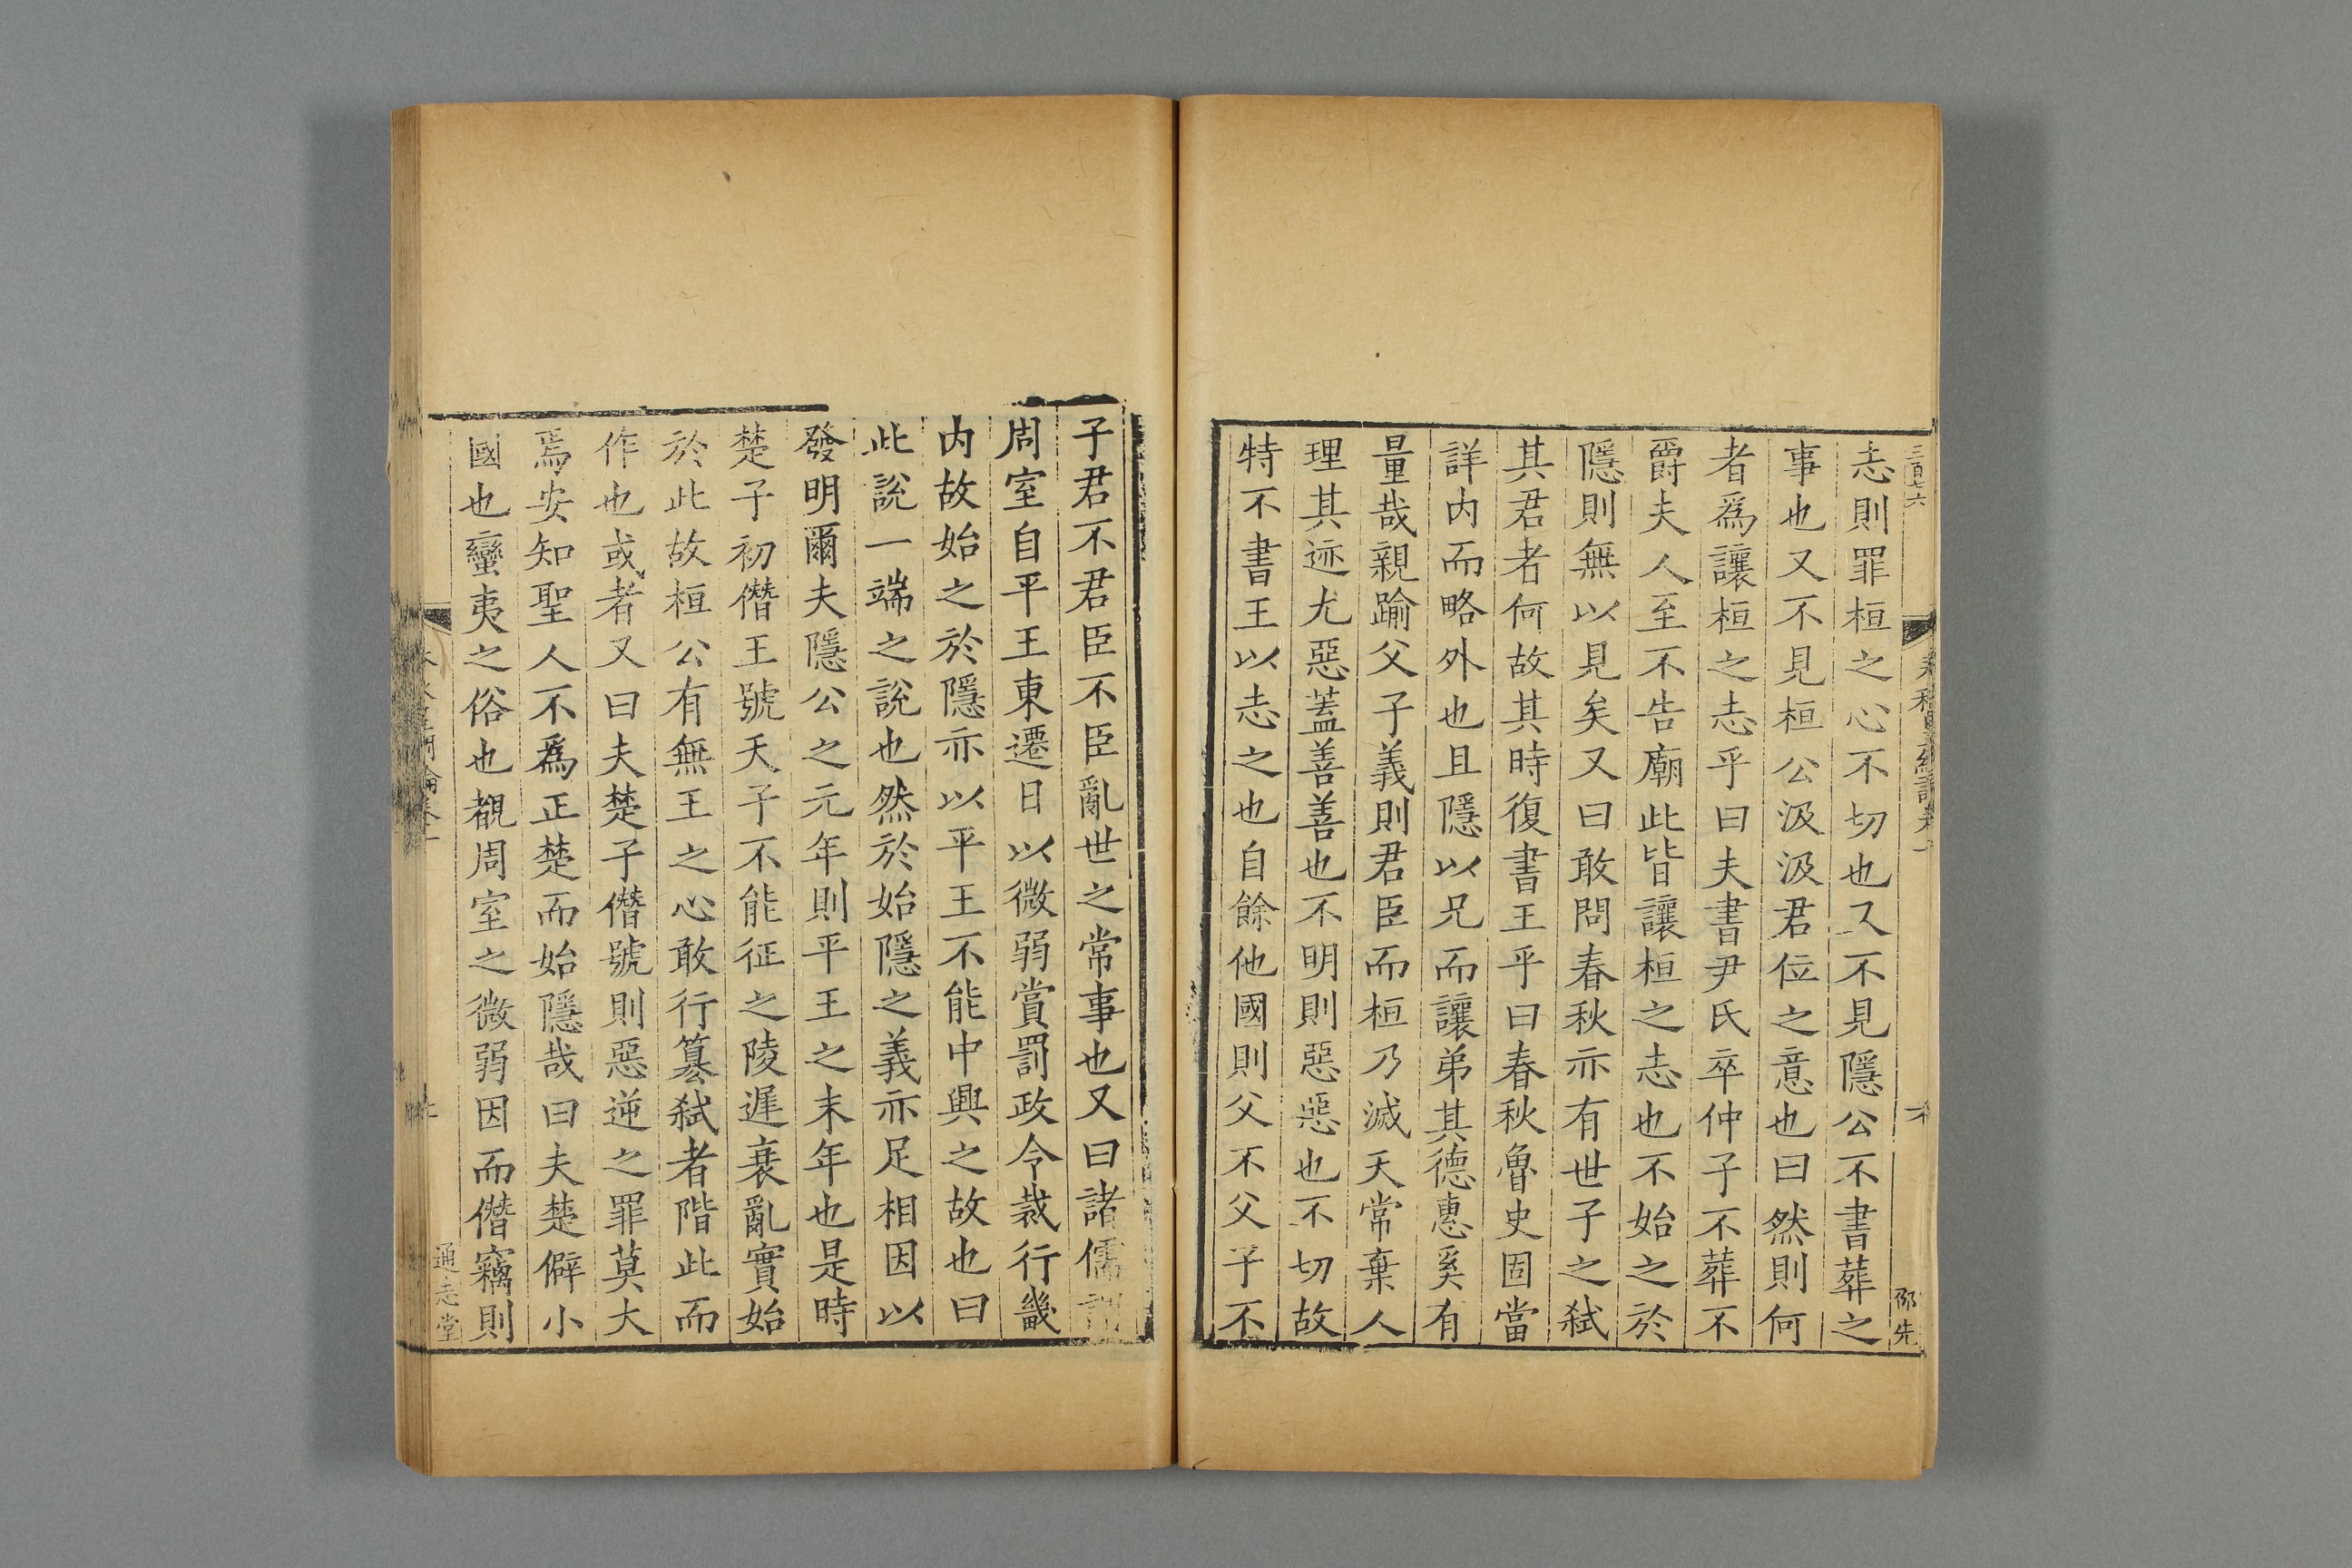 三百七六
六
志則罪桓之心不切也又不見隱公不書葬之
事也又不見桓公汲汲君位之意也曰然則何
者爲讓桓之志乎曰夫書尹氏卒仲子不葬不
爵夫人至不告廟此皆讓桓之志也不始之於
隱則無以見矣又曰敢問春秋亦有世子之弒
其君者何故其時復書王乎曰春秋魯史固當
詳内而略外也且隱以兄而讓弟其德惠奚有
量哉親踰父子義則君臣而桓乃滅天常棄人
理其迹尤惡蓋善善也不明則惡惡也不切故
特不書王以志之也自餘他國則父不父子不
子君不君臣不臣亂世之常事也又曰諸儒
周室自平王東遷日以微弱賞罰政令裁行畿
内故始之於隱亦以平王不能中興之故也曰
此說一端之說也然於始隱之義亦足相因以
發明爾夫隱公之元年則平王之末年也是時
楚子初僭王號天子不能征之陵遲衰亂實始
於此故桓公有無王之心敢行篡弒者階此而
作也或者又曰夫楚子僭號則惡逆之罪莫大
焉安知聖人不爲正楚而始隱哉曰夫楚僻小
國也蠻夷之俗也覩周室之微弱因而僭竊則
通志堂